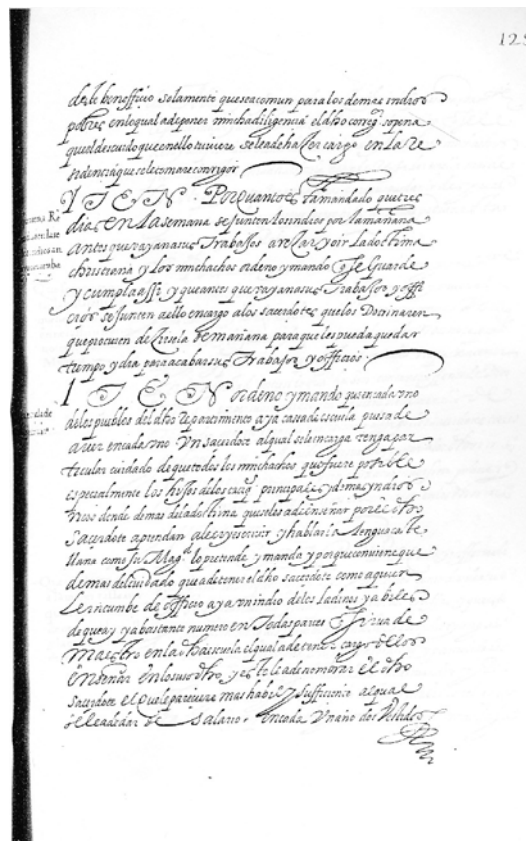 125
deste benefficio solamente que sea comun para los demas indios
pobres en lo qual a de poner mucha diligencia el dho corregor so pena
que el descuido que en ello tuviere se le a de hazer cargo en la re
sidencia que se le tomare corrigor
YTEN. Por quanto esta mandado que tres
dias en la semana se junten los indios por la mañana
antes que vayan a sus trabajos a rezar y oir la doctrina
christiana y los muchachos ordeno y mando se guarde
y cumpla assi y que antes que vayan a sus trabajos y offi
cios se junten a ello encargo a los sacerdotes que los doctrinaren
que procuren de hazerla de mañana para que les pueda quedar
tiempo y dia para acabar sus trabajos y officios.
ITEN ordeno y mando que en cada uno
de los pueblos del dho repartimiento aya casa de escuela pues a de
aver en cada uno un sacerdote al qual se le encarga tenga par
ticular cuidado de que todos los muchachos que fuere posible
especialmente los hijos de los caciqs principales y demas yndios
ricos donde demas de la doctrina que se les a de enseñar por el dho
sacerdote aprendan a leer y escrivir y hablar la lengua caste
llana como su Magd lo pretende y manda y porque conviene que
demas del cuidado que a de tener el dho sacerdote como a quien
le incumbe de officio aya un indio de los ladinos y abiles
de que ay ya bastante numero en todas partes que sirva de
maestro en la dha escuela el qual a de tener cargo de los
enseñar en lo suso dho y este le a de nombrar el dho
sacerdote el que le pareciere mas habil y sufficiente al qual
se le a de dar de salario en cada un año dos vestidos